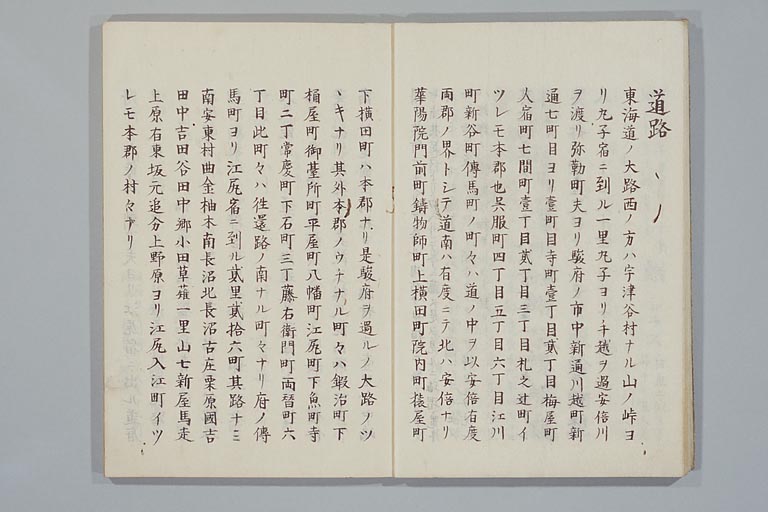 道路
東海道ノ大路西ノ方ハ宇津谷村ナル山ノ峠ヨ
リ丸子宿ニ到ル一里丸子ヨリ手越ヲ過安倍川
ヲ渡リ弥勒町夫ヨリ駿府ノ市中新通川越町新
通七町目ヨリ壹町目寺町壹丁目貳丁目梅屋町
人宿町七間町壹丁目貳丁目三丁目札之辻町イ
ツレモ本郡也呉服町四丁目五丁目六丁目江川
町新谷町傳馬町ノ町々ハ道ノ中ヲ以安倍有度
両郡ノ界トシテ道南ハ有度ニテ北ハ安倍ナリ
華陽院門前町鋳物師町上横田町院内町猿屋町
下横田町ハ本郡ナリ是駿府ヲ過ルノ大路ノツ
ヽキナリ其外本郡ノウチナル町々ハ鍛冶町下
桶屋町御臺所町平屋町八幡町江尻町下魚町寺
町二丁常慶町下石町三丁藤右衛門町両替町六
丁目此町々ハ往還路ノ南ナル町々ナリ府ノ傳
馬町ヨリ江尻宿ニ到ル貳里貳拾六町其路十三
南安東村曲金柚木南長沼北長沼古庄栗原國吉
田中吉田谷田中郷小田草薙一里山七新屋馬走
上原有東坂元追分上野原ヨリ江尻入江町イツ
レモ本郡ノ村々ナリ